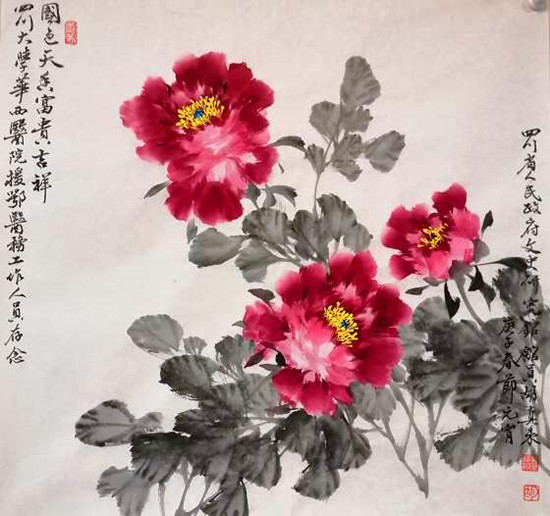 國色天香富貴吉祥
四川大學華西醫院援鄂醫務工作人員存念
四川省人民政府文史研究館館員
庚子春節元宵